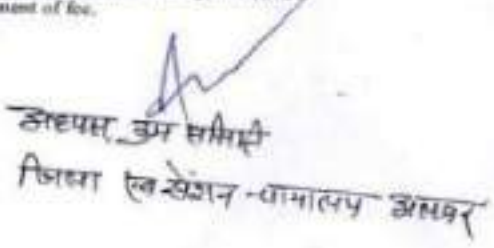 ment of fee.
अध्यक्ष, उप समिति
जिला एवं सेशन न्यायालय अलवर